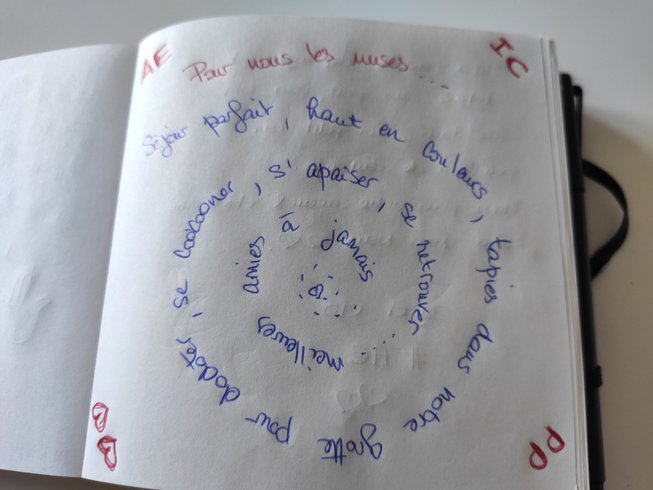 AE
IC
Pour nous les muses...
Séjour parfait, haut en couleurs, tapies dans notre grotte pour dodoter, se cocooner, s'apaiser, se retrouver.... meilleures amies à jamais
BB
PP